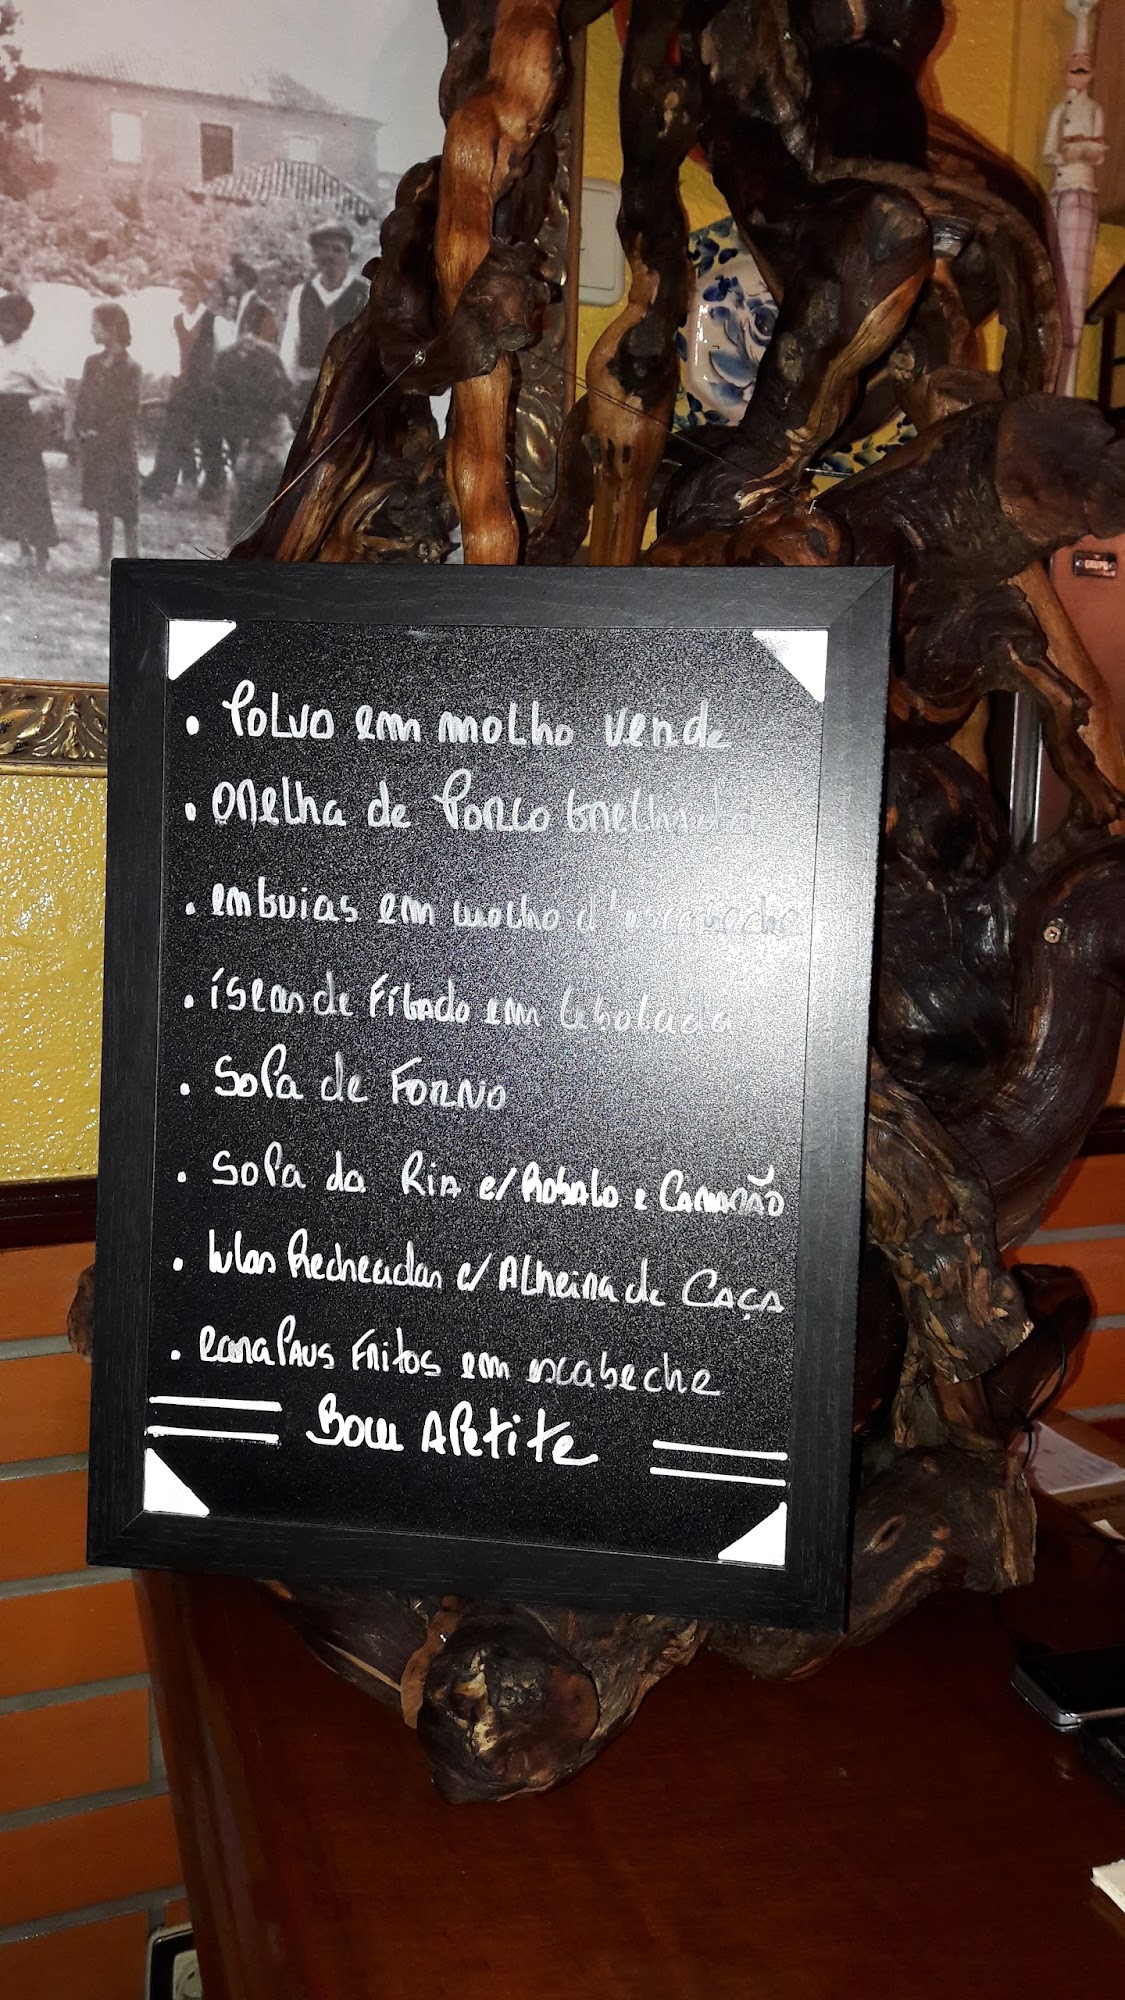 • Polvo em molho verde
• orelha de Porco grelhada
• enguias em molho d'escabeche
• íscas de Fígado em Cebolada
• Sopa de Forno
• Sopa da Ria c/ Robalo e Camarão
• lulas Recheadas c/ Alheira de Caça
• carapaus Fritos em escabeche
Bom Apetite
GRUPO